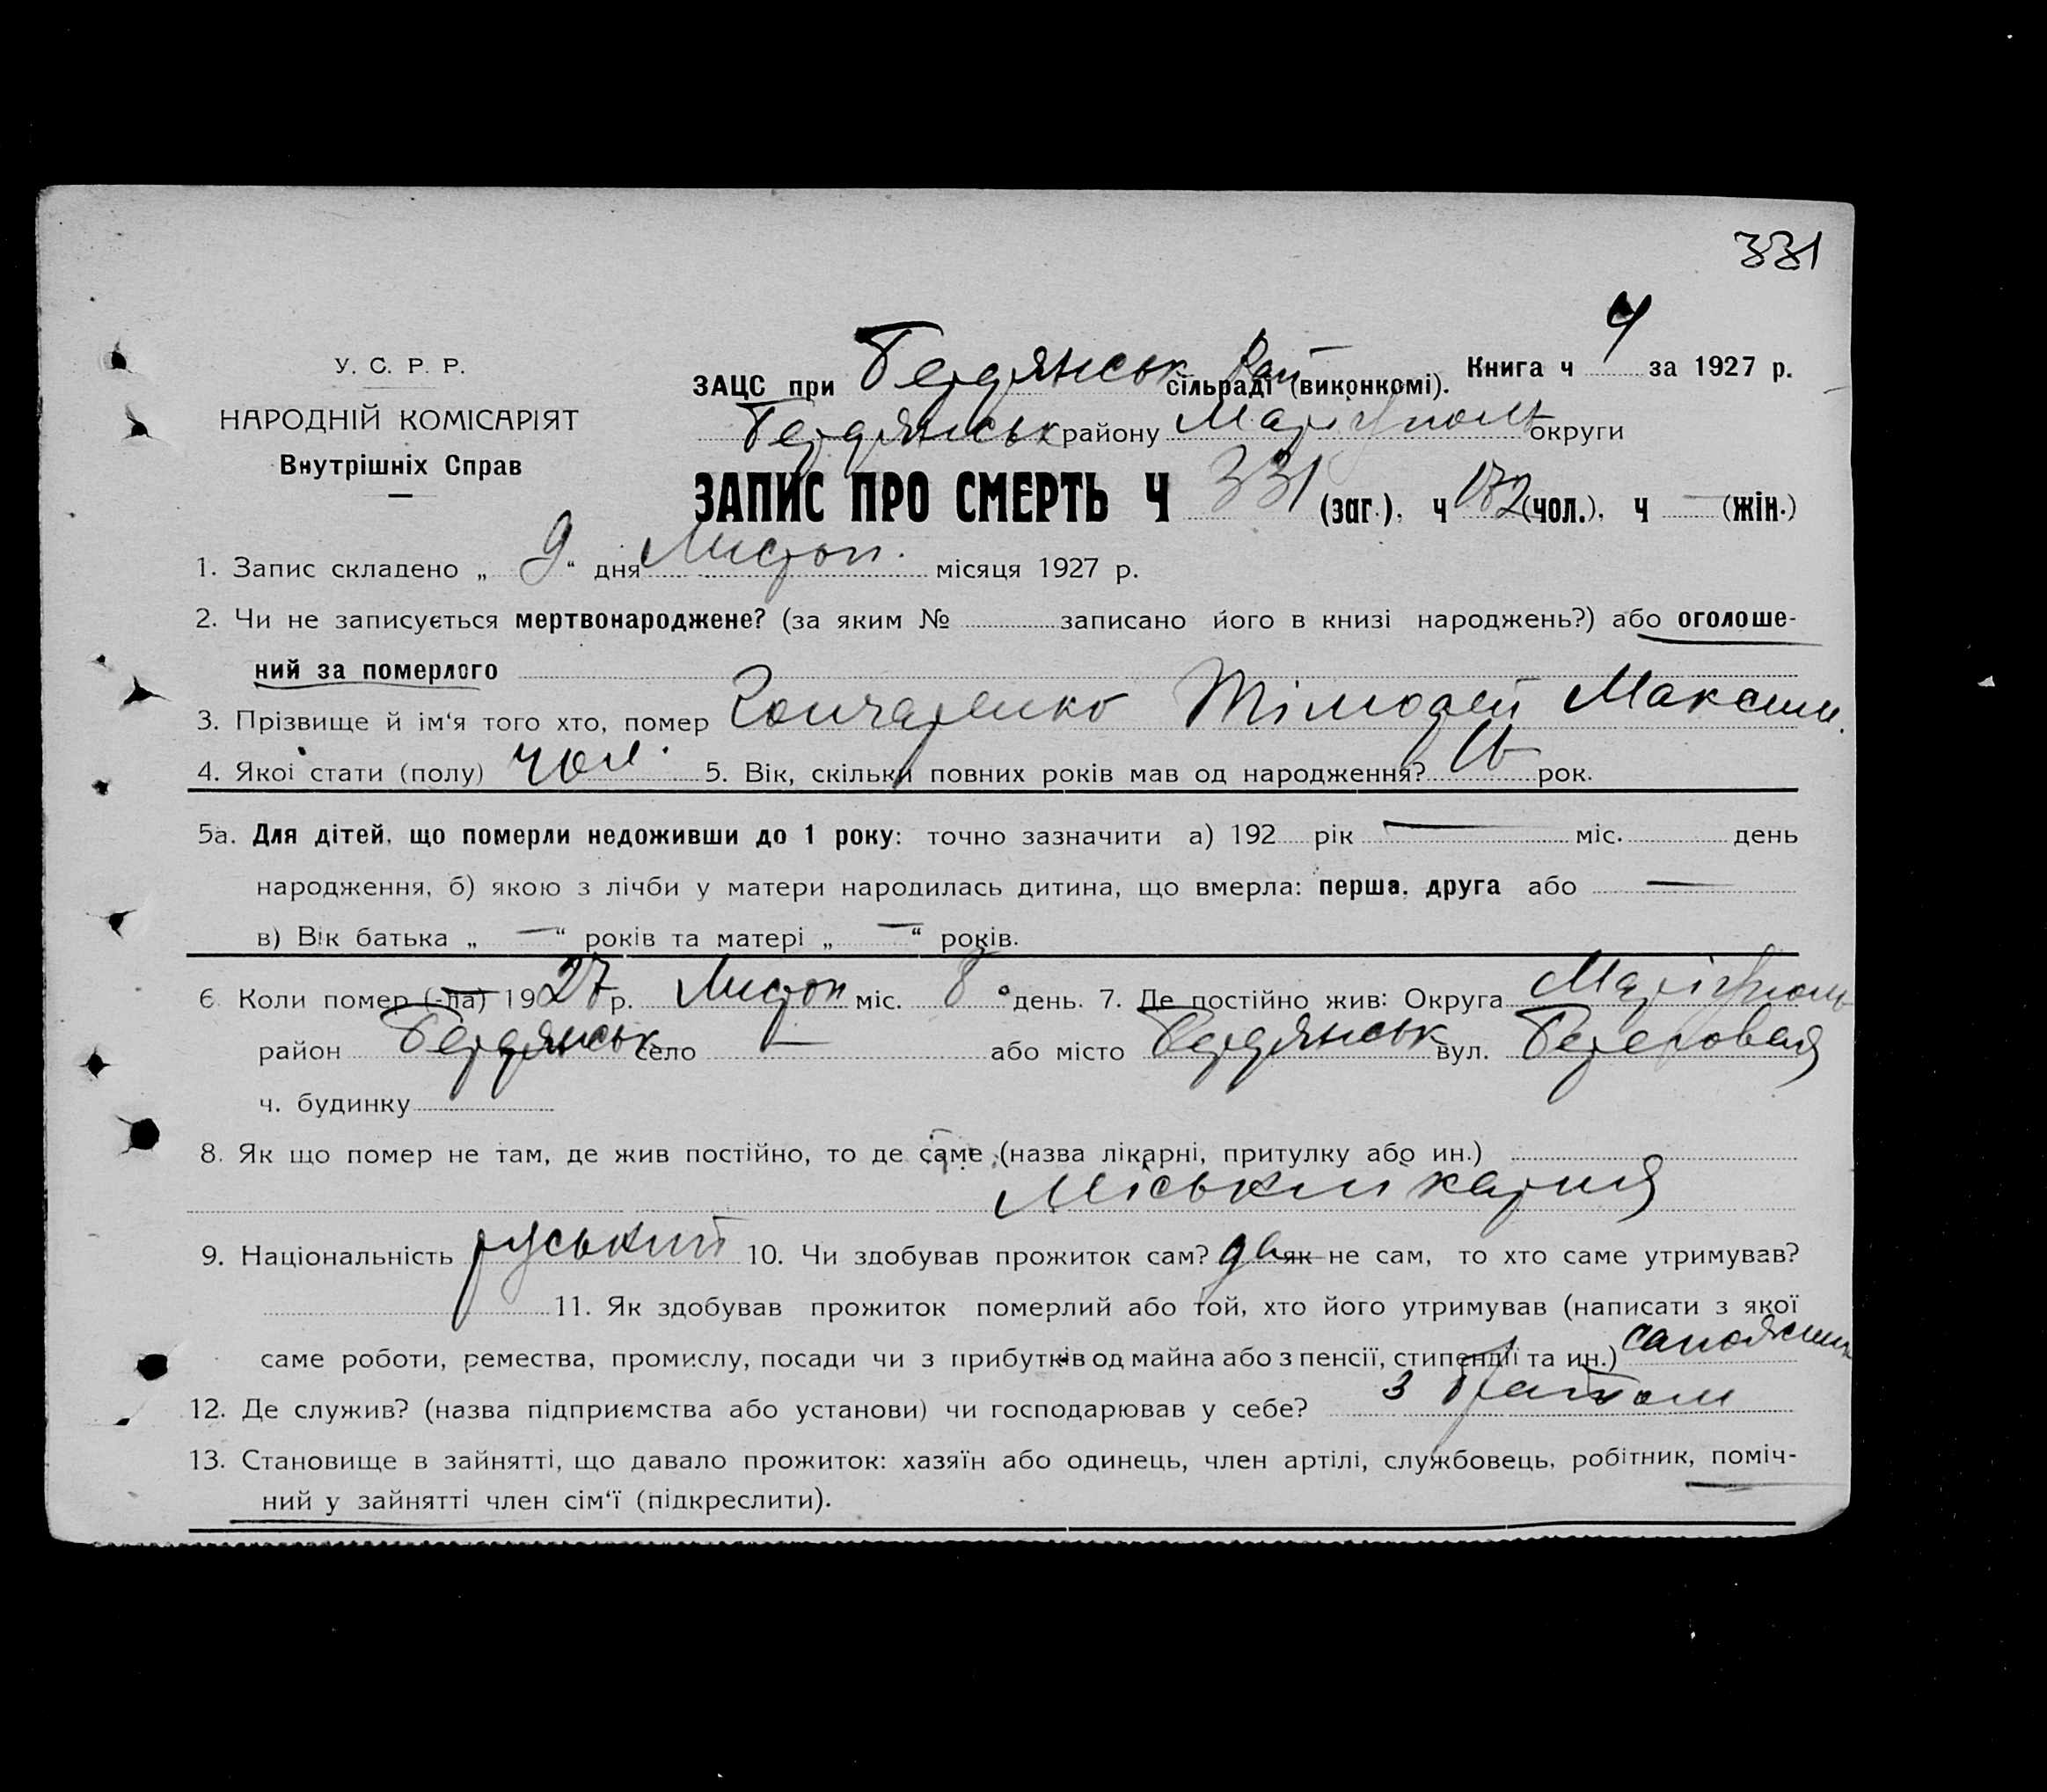 331
У. С. Р. Р.
НАРОДНІЙ КОМІСАРІЯТ
Внутрішніх Справ
ЗАЦС при Бердянськ Рай сільраді (виконкомі). Книга ч 4 за 1927 р.
Бердянськ району Маріуполь округи
ЗАПИС ПРО СМЕРТЬ Ч 331 (заг.), ч 182 (чол.), ч — (жін.)
1. Запис складено „ 9 “ дня Листоп. місяця 1927 р.
2. Чи не записується мертвонароджене? (за яким № записано його в книзі народжень?) або оголоше-
ний за померлого
3. Прізвище й ім‘я того хто, помер Гончаренко Тімофей Максим.
4. Якої стати (полу) чол. 5. Вік, скільки повних років мав од народження? 16 рок.
5а. Для дітей, що померли недоживши до 1 року: точно зазначити а) 192 рік — міс. день
народження, б) якою з лічби у матери народилась дитина, що вмерла: перша, друга або —
в) Вік батька „ — “ років та матері „ — “ років.
6 Коли помер (-ла) 1927 р. Листоп міс. 8 день. 7. Де постійно жив: Округа Маріуполь
район Бердянськ село — або місто Бердянськ вул. Береговая
ч. будинку
8. Як що помер не там, де жив постійно, то де саме (назва лікарні, притулку або ин.)
Міський
9. Національність руський 10. Чи здобував прожиток сам? да як не сам, то хто саме утримував?
11. Як здобував прожиток померлий або той, хто його утримував (написати з якої
саме роботи, ремества, промислу, посади чи з прибутків од майна або з пенсії, стипендії та ин.) сапожник
12. Де служив? (назва підприємства або установи) чи господарював у себе? з братом
13. Становище в зайнятті, що давало прожиток: хазяїн або одинець, член артілі, службовець, робітник, поміч-
ний у зайнятті член сім‘ї (підкреслити).